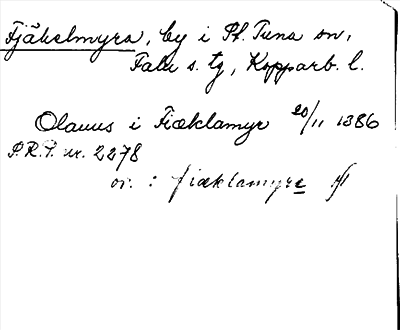 Fjäkelmyra, by i St. Tuna sn,
Falu s. tg, Kopparb. l.
Olauus i Fiæklamyr 20/11 1386
P.R.P. nr. 2278
or. : fiæklamyre